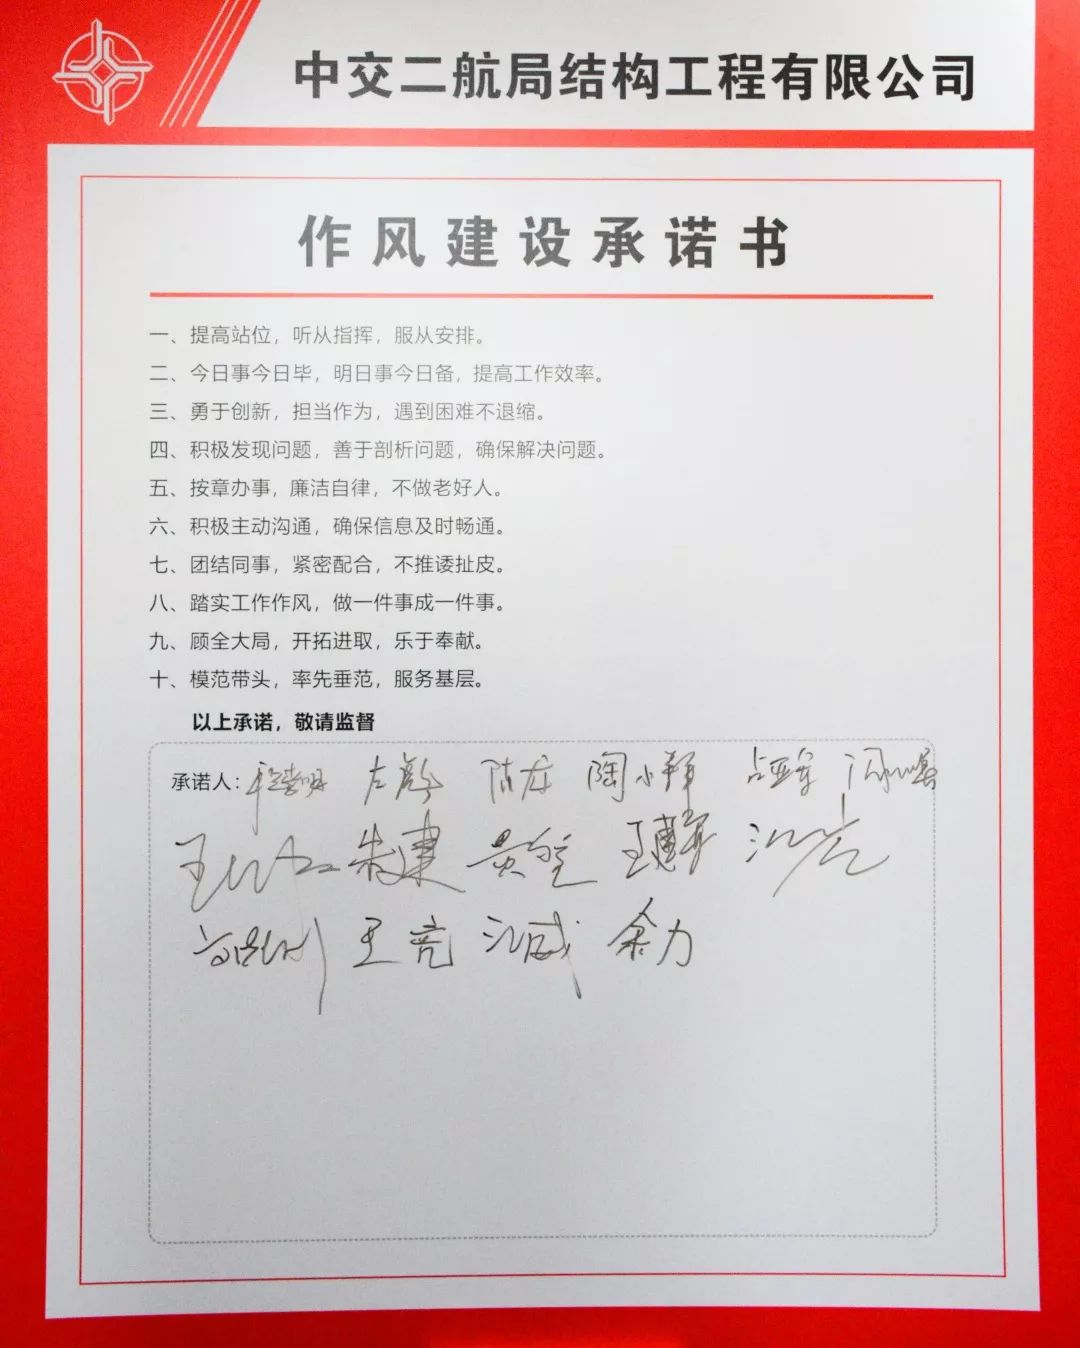 中交二航局结构工程有限公司
作风建设承诺书
一、提高站位，听从指挥，服从安排。
二、今日事今日毕，明日事今日备，提高工作效率。
三、勇于创新，担当作为，遇到困难不退缩。
四、积极发现问题，善于剖析问题，确保解决问题。
五、按章办事，廉洁自律，不做老好人。
六、积极主动沟通，确保信息及时畅通。
七、团结同事，紧密配合，不推诿扯皮。
八、踏实工作作风，做一件事成一件事。
九、顾全大局，开拓进取，乐于奉献。
十、模范带头，率先垂范，服务基层。
以上承诺，敬请监督
承诺人： 陈龙 陶小群
朱建
王亮 江威 余力